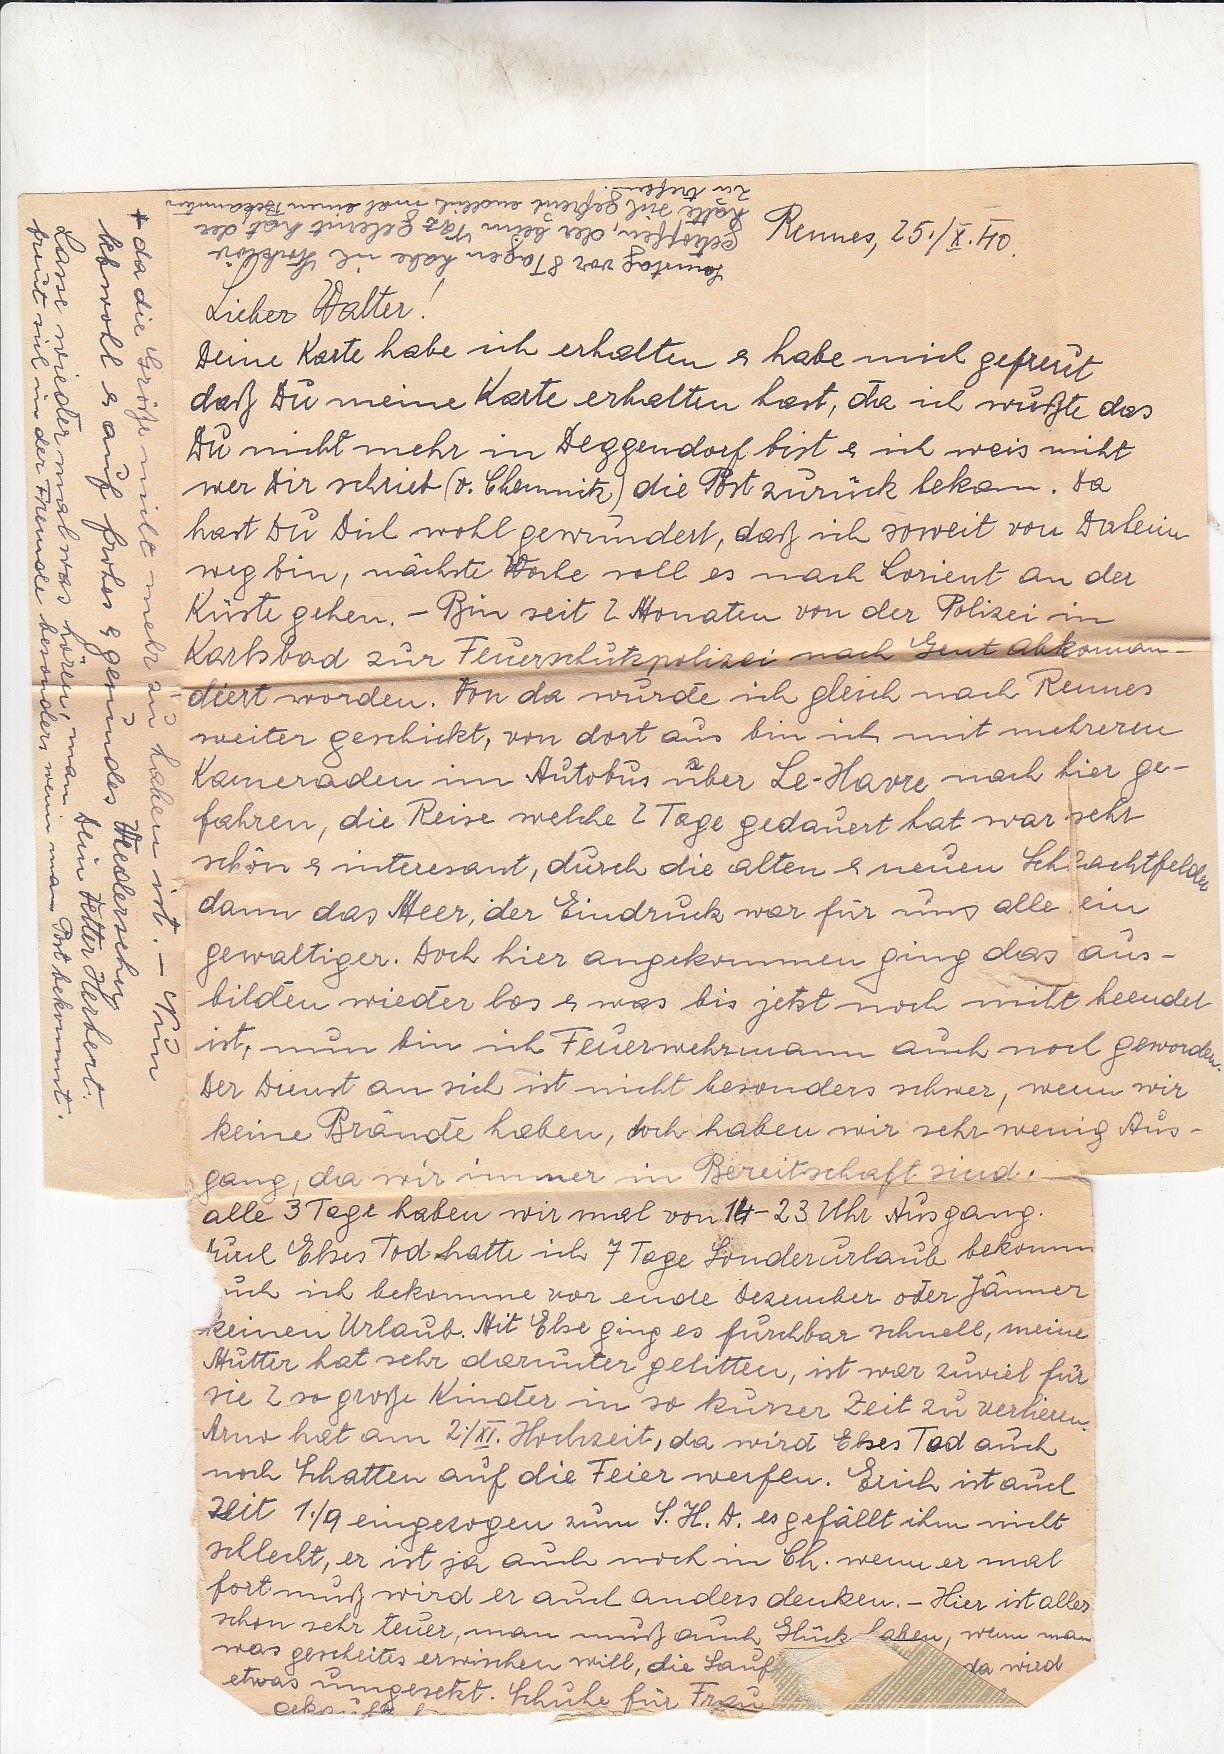 Rennes, 25./X.40.
Lieber Walter!
Deine Karte habe ich erhalten & habe mich gefreut
daß Du meine Karte erhalten hast, da ich wußte das
Du nicht mehr in Deggendorf bist & ich weis nicht
wer Dir schrieb (v. Chemnitz) die Post zurück bekam. Da
hast Du Dich wohl gewundert, daß ich soweit von Daheim
weg bin, nächste Woche soll es nach Lorient an der
Küste gehen. – Bin seit 2 Monaten von der Polizei in
Karlsbad zur Feuerschutzpolizei nach Gent abkoman-
diert worden. Von da wurde ich gleich nach Rennes
weiter geschickt, von dort aus bin ich mit mehreren
Kameraden im Autobus über Le-Havre nach hier ge-
fahren, die Reise welche 2 Tage gedauert hat war sehr
schön & interesant, durch die alten & neuen Schlachtfelder
dann das Meer, der Eindruck war für uns alle ein
gewaltiger. Doch hier angekommen ging das aus-
bilden wieder los & was bis jetzt noch nicht beendet
ist, nun bin ich Feuerwehrmann auch noch geworden.
Der Dienst an sich ist nicht besonders schwer, wenn wir
keine Brände haben, doch haben wir sehr wenig Aus-
gang, da wir immer in Bereitschaft sind.
alle 3 Tage haben wir mal von 14-23 Uhr Ausgang.
Elses Tod hatte ich 7 Tage Sonderurlaub bekomm
ich bekomme vor ende Dezember oder Jänner
keinen Urlaub. Mit Else ging es furchbar schnell, meine
Mutter hat sehr darunter gelitten, ist war zuviel für
sie 2 so große Kinder in so kurzer Zeit zu verlieren.
Arno hat am 2./XI. Hochzeit, da wird Elses Tod auch
noch Schatten auf die Feier werfen. Erich ist auch
Zeit 1./9 eingezogen zum S.H.D. es gefällt ihm nicht
schlecht, er ist ja auch noch in Ch. wenn er mal
fort muß wird er auch anders denken. – Hier ist alles
schon sehr teuer, man muß auch Glück haben, wenn man
was gescheites erwischen will, die da wird
etwas umgesetzt. Schuhe für Frau
+ da die Größe nicht mehr zu haben ist. – Nun
lebwohl & auf frohes & gesundes Wiedersehen
Dein Vetter Herbert.
Lasse wieder mal was hören, man
freut sich in der Fremde besonders wenn man Post bekommt.
Sonntag vor 8 Tagen habe ich
getroffen, der beim Taz gelernt hat der
hatte sich gefreut endlich mal einen Bekannten
zu treffen.